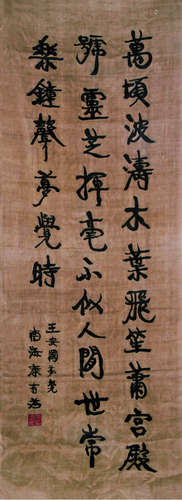 萬頃波濤木葉飛笙簫宮殿
號靈芝揮毫不似人間世常
樂鐘聲夢覺時
王安國
南海康有為